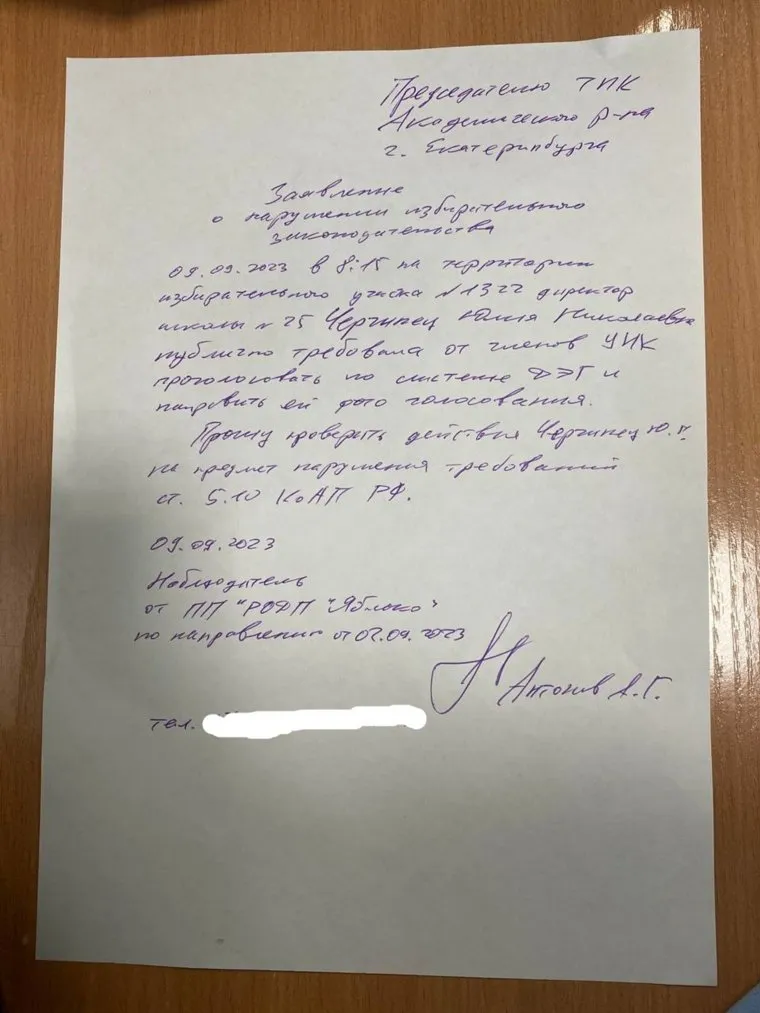 Председателю ТИК
Академического р-на
г. Екатеринбурга
Заявление
о нарушении избирательного
законодательства
09.09.2023 в 8:15 на территории
избирательного участка №1322 директор
школы №25 Черчинец Юлия Николаевна
публично требовала от членов УИК
проголосовать по системе ДЭГ и
направить ей фото голосования.
Прошу проверить действия Черчинец Ю.Н.
на предмет нарушения требований
ст. 5.10 КоАП РФ.
09.09.2023
Наблюдатель
от ПП "РОДП "Яблоко"
по направлению от 02.09.2023
А.Г.
тел.